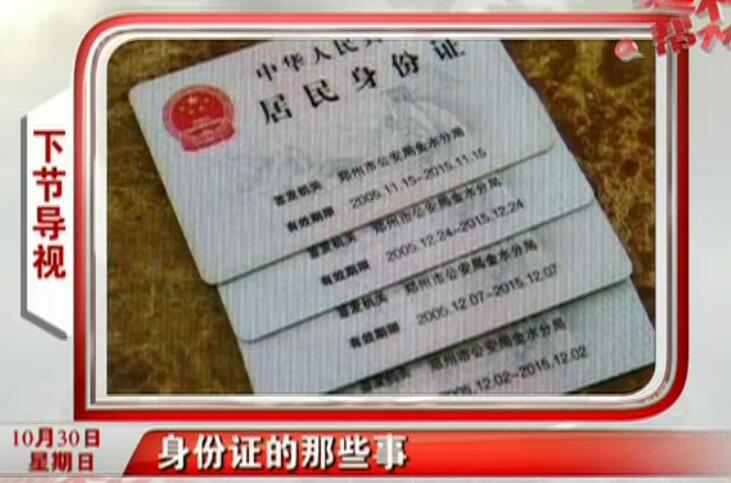 下节导视
中华人民共
居民身份证
签发机关 郑州市公安局金水分局
有效期限 2005.11.15-2015.11.15
签发机关 郑州市公安局金水分局
有效期限 2005.12.24-2015.12.24
签发机关 郑州市公安局金水分局
有效期限 2005.12.07-2015.12.07
签发机关 郑州市公安局金水分局
2005.12.02-2015.12.02
10月30日
星期日
身份证的那些事